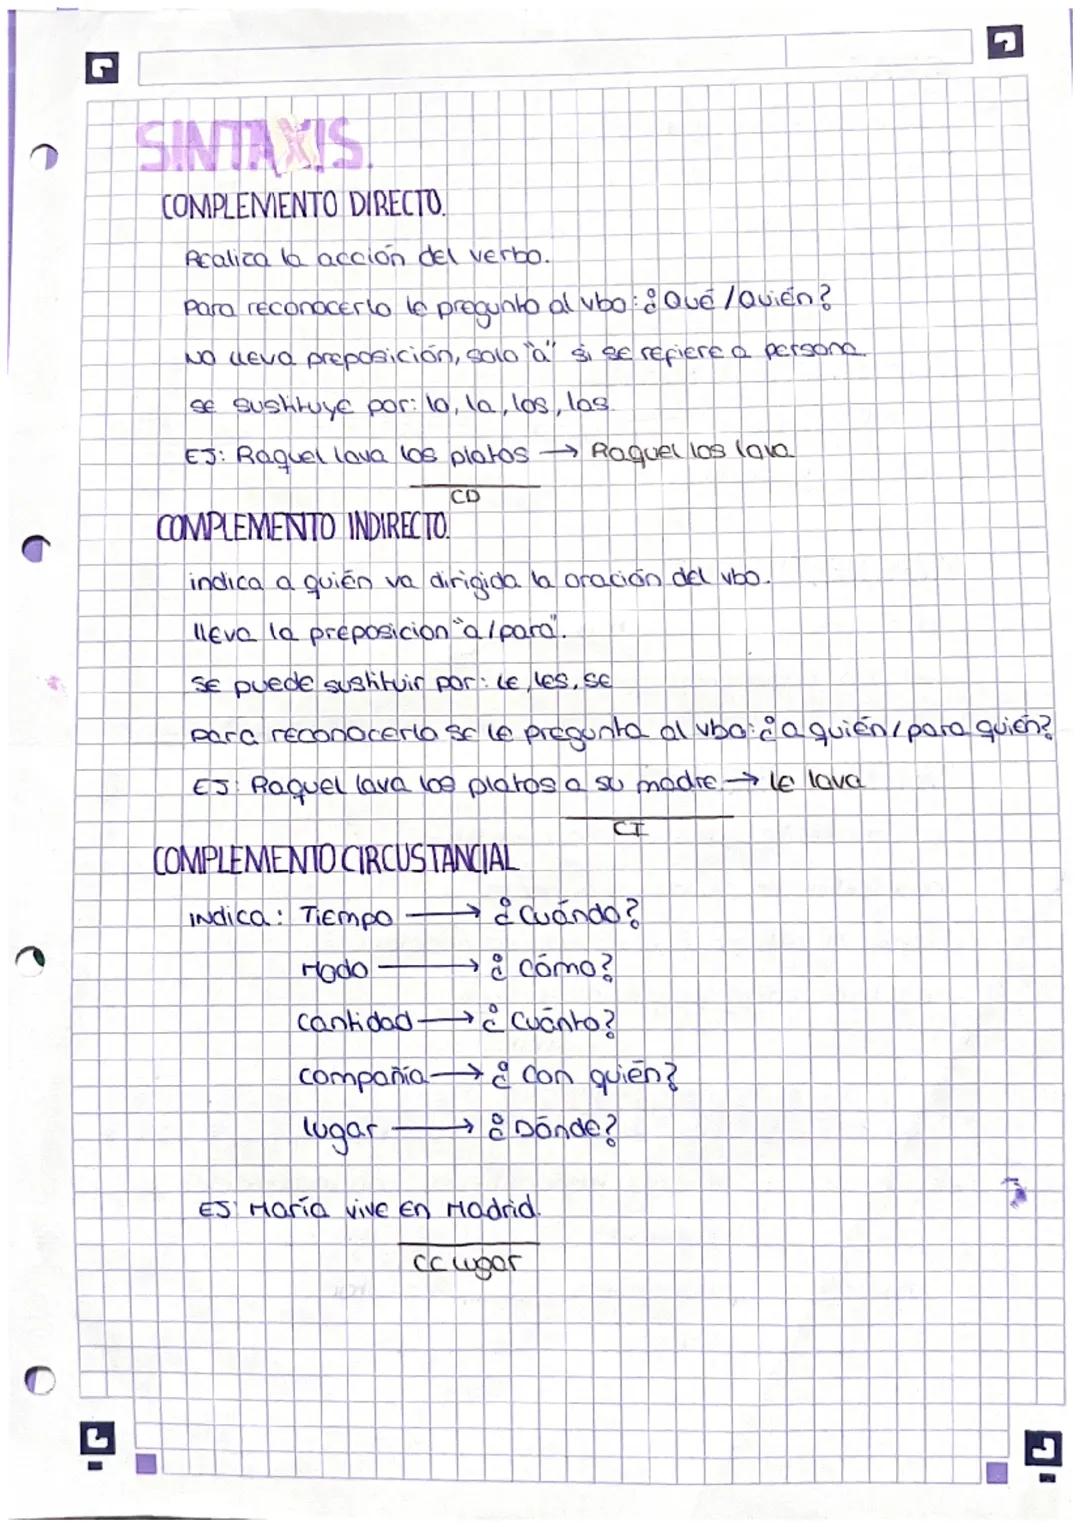 SINTAXIS.
COMPLEMENTO DIRECTO.
Realiza la acción del verbo.
Para reconocerlo le pregunto al vbo: ¿Qué / Quién?
No lleva preposición, solo "a" si se refiere a persona.
se sustituye por: lo, la, los, las.
EJ: Raquel lava los platos → Raquel los lava.
CD
COMPLEMENTO INDIRECTO.
indica a quién va dirigida la oración del vbo.
lleva la preposicion "a/para".
se puede sustituir por: le, les, se
para reconocerlo se le pregunta al vbo: ¿a quién/para quién?
EJ: Raquel lava los platos a su madre. → le lava
CI
COMPLEMENTO CIRCUSTANCIAL
indica: Tiempo → ¿Cuándo?
Modo → ¿Cómo?
cantidad → ¿Cuánto?
compañía → ¿Con quién?
lugar → ¿Dónde?
EJ: María vive en Madrid.
CC lugar